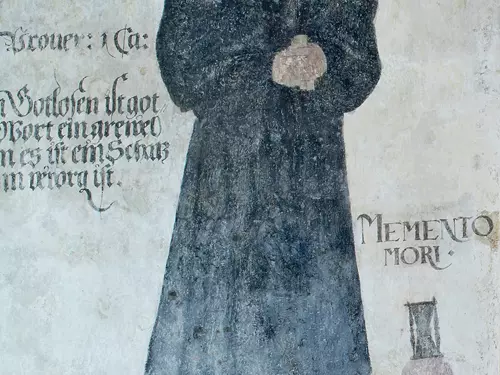 Prouer: 1 Ca:
Gotlosen ist got
Wort ein grewel
es ist ein Schatz
in verorg ist.
MEMENTO
MORI ·